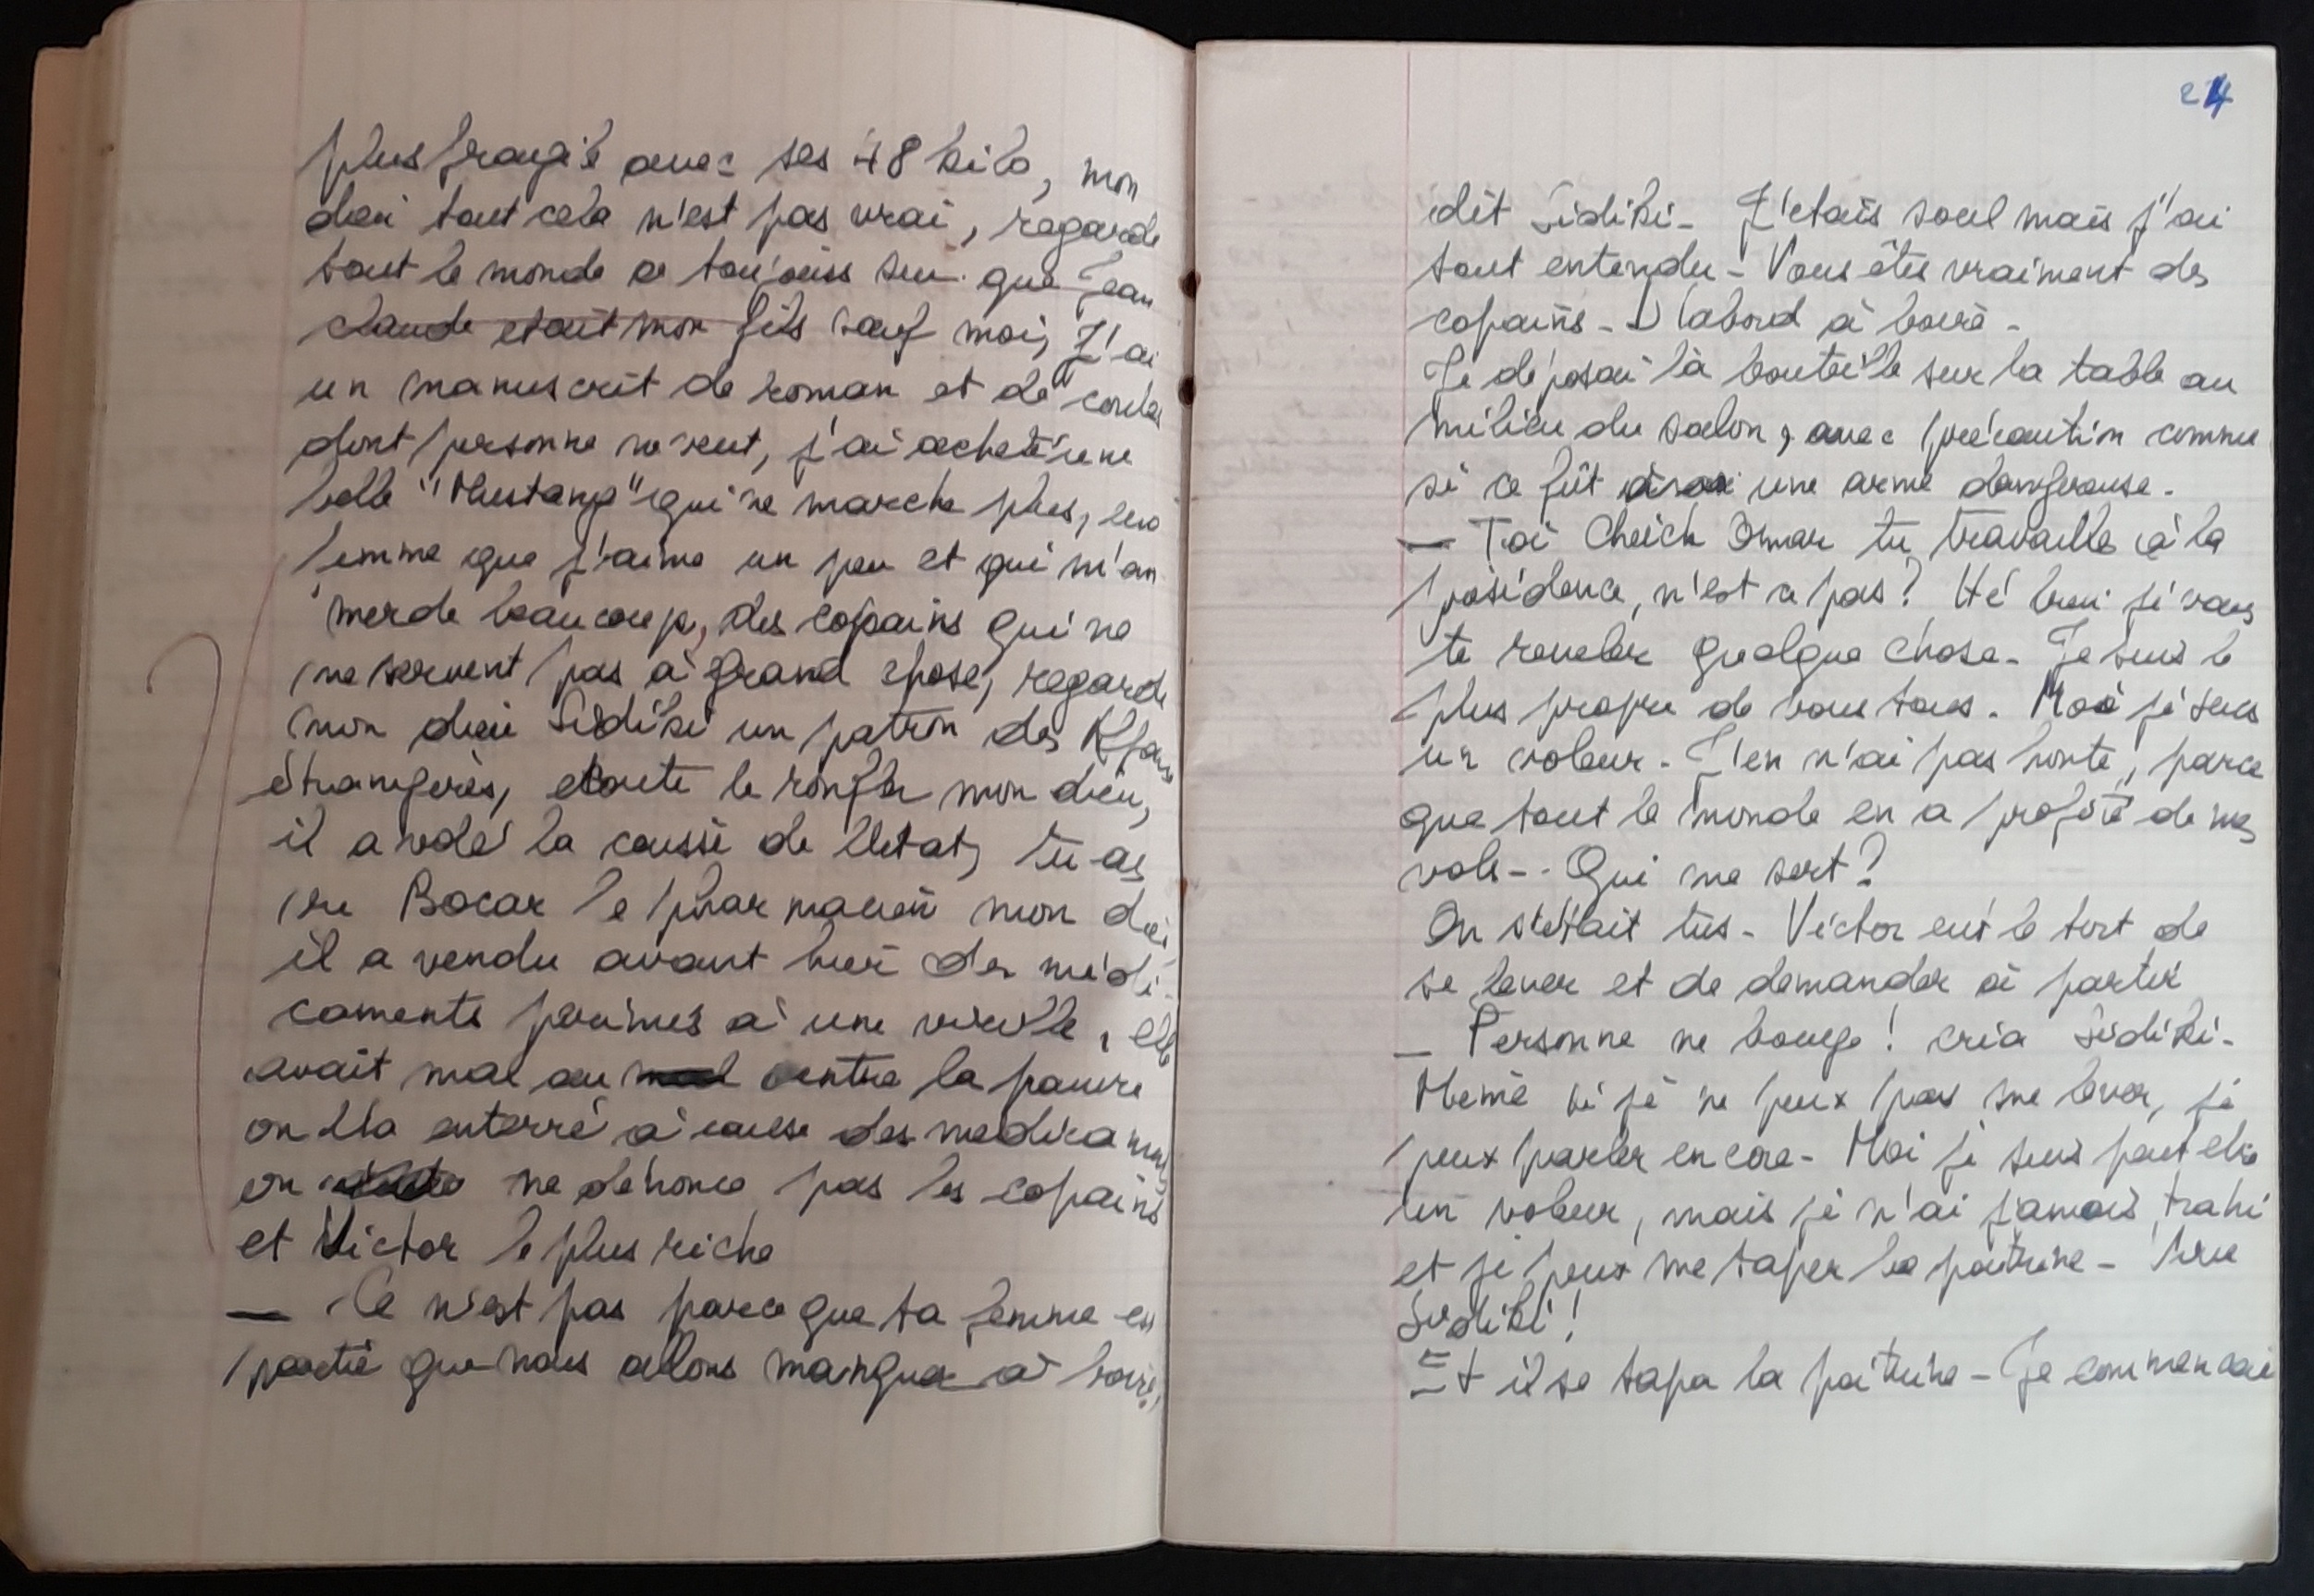 plus fragile avec ses 48 kilo, mon
dieu tout cela n'est pas vrai, regarde
tout le monde a toujours su que Jean
claude etait mon fils sauf moi, J'ai
un manuscrit de roman et de contes
dont personne ne veut, j'ai acheté une
belle "Mustang" qui ne marche plus, une
femme que j'aime un peu et qui m'em
merde beaucoup, des copains qui ne
me servent pas à grand chose, regarde
mon dieu Sidiki un patron des Affaires
étrangères, ecoute le ronfler mon dieu,
il a vidé la caisse de l'Etat, tu as
vu Bocar le pharmacien mon dieu
il a vendu avant hier des médi-
caments perimés à une vieille, elle
avait mal au ventre la pauvre
on l'a enterré à cause des medicaments
on ne dénonce pas les copains
et Victor le plus riche
— Ce n'est pas parce que ta femme est
partie que nous allons manquer à boire,
24
dit Sidiki - J'etais soul mais j'ai
tout entendu - Vous êtes vraiment des
copains - D'abord à boire -
Je déposai la bouteille sur la table au
milieu du salon, avec précaution comme
si ce fût une arme dangereuse -
— Toi Cheick Omar tu travailles à la
présidence, n'est ce pas? Hé bien je vais
te reveler quelque chose - Je suis le
plus propre de vous tous. Moi je suis
un voleur - J'en n'ai pas honte, parce
que tout le monde en a profité de mes
vols - Qui me sert?
On s'était tus - Victor eut le tort de
se lever et de demander à partir
— Personne ne bouge! cria Sidiki -
Même si je ne peux pas me lever, je
peux parler encore - Moi je suis peut etre
un voleur, mais je n'ai jamais trahi
et je peux me taper la poitrine -
Sidiki!
Et il se tapa la poitrine - Je commençai